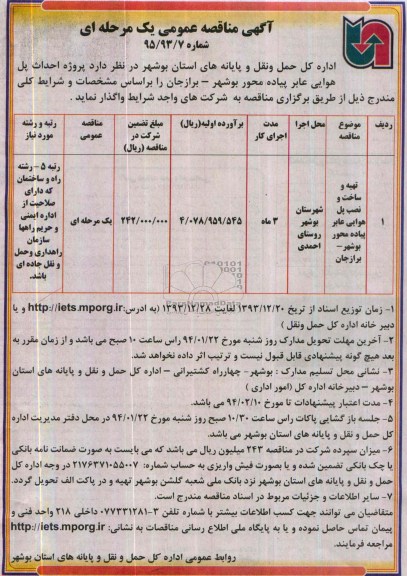 آگهی مناقصه عمومی یک مرحله ای
شماره ۹۵/۹۳/۷
اداره کل حمل ونقل و پایانه های استان بوشهر در نظر دارد پروژه احداث پل
هوایی عابر پیاده محور بوشهر – برازجان را براساس مشخصات و شرایط کلی
مندرج ذیل از طریق برگزاری مناقصه به شرکت های واجد شرایط واگذار نماید .
ردیف موضوع مناقصه محل اجرا مدت اجرای کار برآورده اولیه(ریال) مبلغ تضمین شرکت در مناقصه (ریال) مناقصه عمومی رتبه و رشته مورد نیاز
۱ تهیه و ساخت و نصب پل هوایی عابر پیاده محور بوشهر– برازجان شهرستان بوشهر روستای احمدی ۳ ماه ۴/۰۷۸/۹۵۹/۵۴۵ ۲۴۲/۰۰۰/۰۰۰ یک مرحله ای رتبه ۵ – رشته راه و ساختمان که دارای صلاحیت از اداره ایمنی و حریم راهها سازمان راهداری وحمل و نقل جاده ای باشد.
۱- زمان توزیع اسناد از تریخ ۱۳۹۳/۱۲/۲۰ لغایت ۱۳۹۳/۱۲/۲۸ (به ادرس:http://iets.mporg.ir و یا
دبیر خانه اداره کل حمل ونقل )
۲- آخرین مهلت تحویل مدارک روز شنبه مورخ ۹۴/۰۱/۲۲ راس ساعت ۱۰ صبح می باشد و از زمان مقرر به
بعد هیچ گونه پیشنهادی قابل قبول نیست و ترتیب اثر داده نخواهد شد.
۳- نشانی محل تسلیم مدارک : بوشهر- چهارراه کشتیرانی – اداره کل حمل و نقل و پایانه های استان
بوشهر – دبیرخانه اداره کل (امور اداری )
۴- مدت اعتبار پیشنهادات تا مورخ ۹۴/۰۲/۱۰ می باشد.
۵- جلسه باز گشایی پاکات راس ساعت ۱۰/۳۰ صبح روز شنبه مورخ ۹۴/۰۱/۲۲ در محل دفتر مدیریت اداره
کل حمل و نقل و پایانه های استان بوشهر می باشد.
۶- میزان سپرده شرکت در مناقصه ۲۴۳ میلیون ریال می باشد که می بایست به صورت ضمانت نامه بانکی
یا چک بانکی تضمین شده و یا بصورت فیش واریزی به حساب شماره: ۲۱۷۶۳۷۱۰۵۵۰۰۷ در وجه اداره کل
حمل و نقل و پایانه های استان بوشهر نزد بانک ملی شعبه گلشن بوشهر تهیه و در پاکت الف تحویل گردد.
۷- سایر اطلاعات و جزئیات مربوط در اسناد مناقصه مندرج است.
متقاضیان می توانند جهت کسب اطلاعات بیشتر با شماره تلفن ۳-۰۷۷۳۳۱۲۸۱ داخلی ۲۱۸ واحد فنی و
پیمان تماس حاصل نموده و یا به پایگاه ملی اطلاع رسانی مناقصات به نشانی: http://iets.mporg.ir
مراجعه فرمایند.
روابط عمومی اداره کل حمل و نقل و پایانه های استان بوشهر